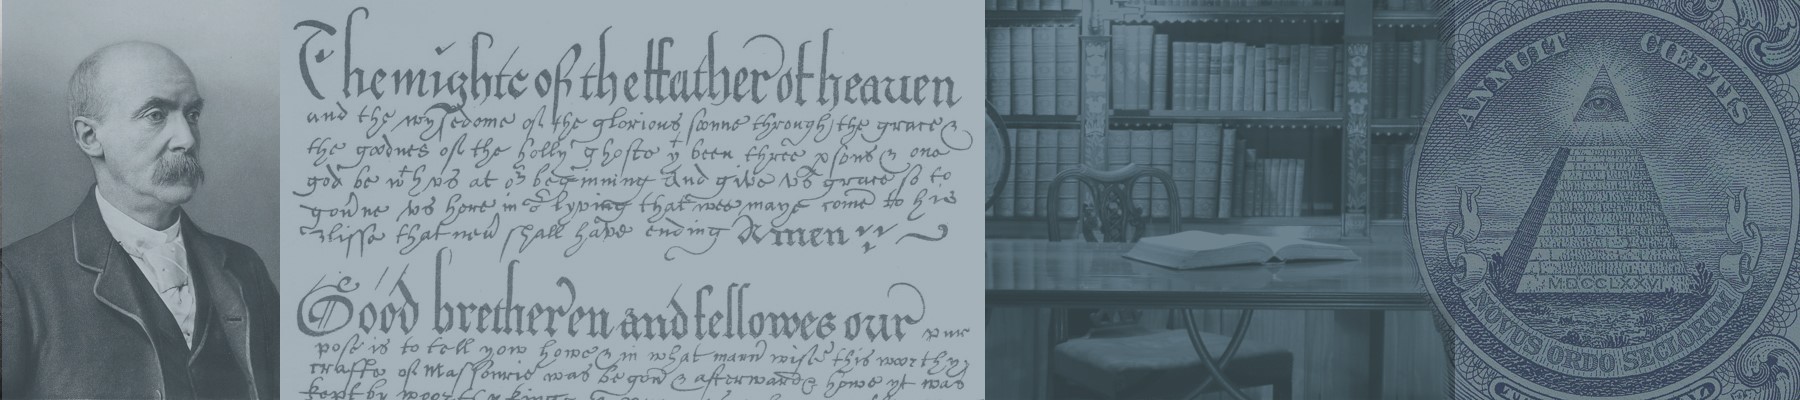 The mighte of the ffather of heauen
and the wysedome of the glorious soonne through the grace &
the goodnes of the holly ghoste yt been three psons & one
god be wth vs at or beginning and giue vs grace so to
gou'ne vs here in or lyving that wee maye come to his
blisse that neu' shall haue ending Amen
Good bretheren and fellowes our pur
pose is to tell yow howe & in what mann' wise this woorthy
craffte of Massonrie was begon & afterwards howe yt was
kept by woorthy kings
ANNUIT CŒPTIS
MDCCLXXVI
NOVUS ORDO SECLORUM